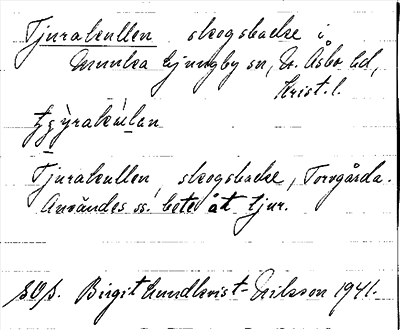 Tjurakullen skogsbacke i
Munka Ljungby sn, N. Åsbo hd,
Krist. l.
Tjurakullen, skogsbacke, Torvgårda.
Användes ss. bete åt tjur.
SOS. Birgit Lundkvist-Nilsson 1941.